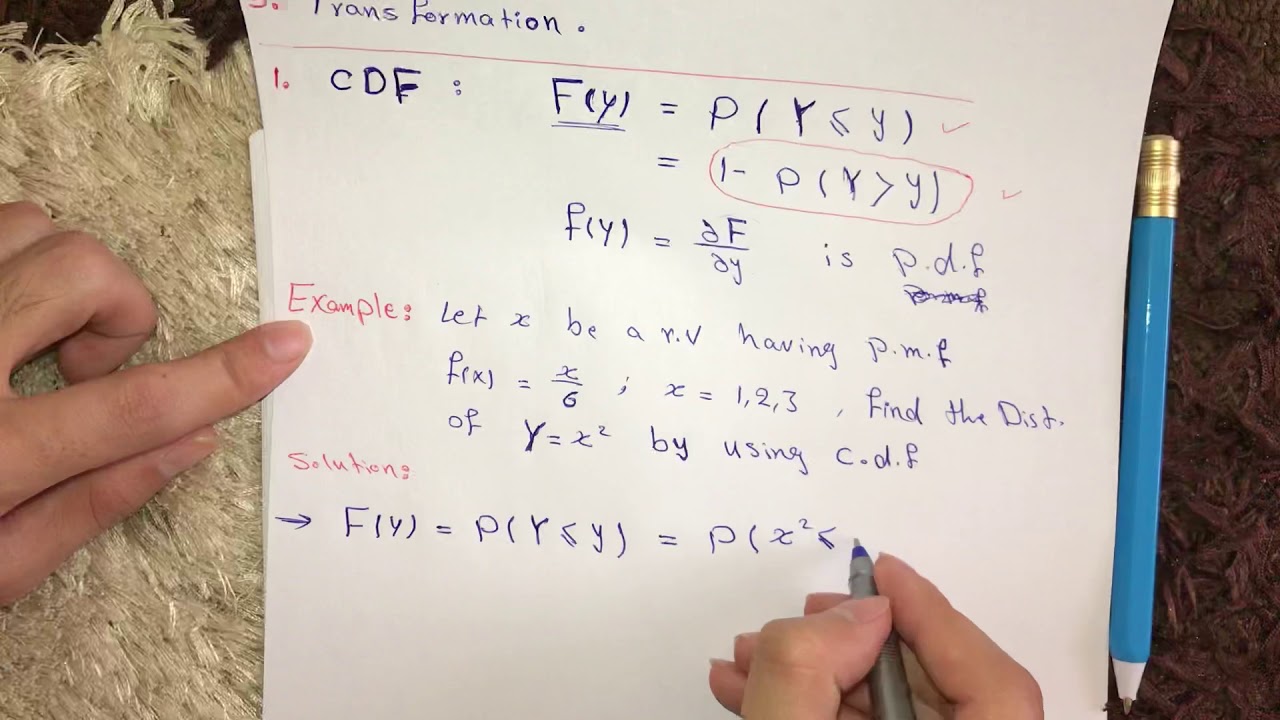 3. Transformation.
1. CDF : F(y) = P(Y ≤ y) ✓
= 1- P(Y > y) ✓
f(y) = ∂F/∂y is p.d.f
Example: Let x be a r.v having p.m.f
f(x) = x/6 ; x = 1,2,3 , find the Dist.
of Y = x² by using c.d.f
Solution:
→ F(y) = P(Y ≤ y) = P(x² ≤